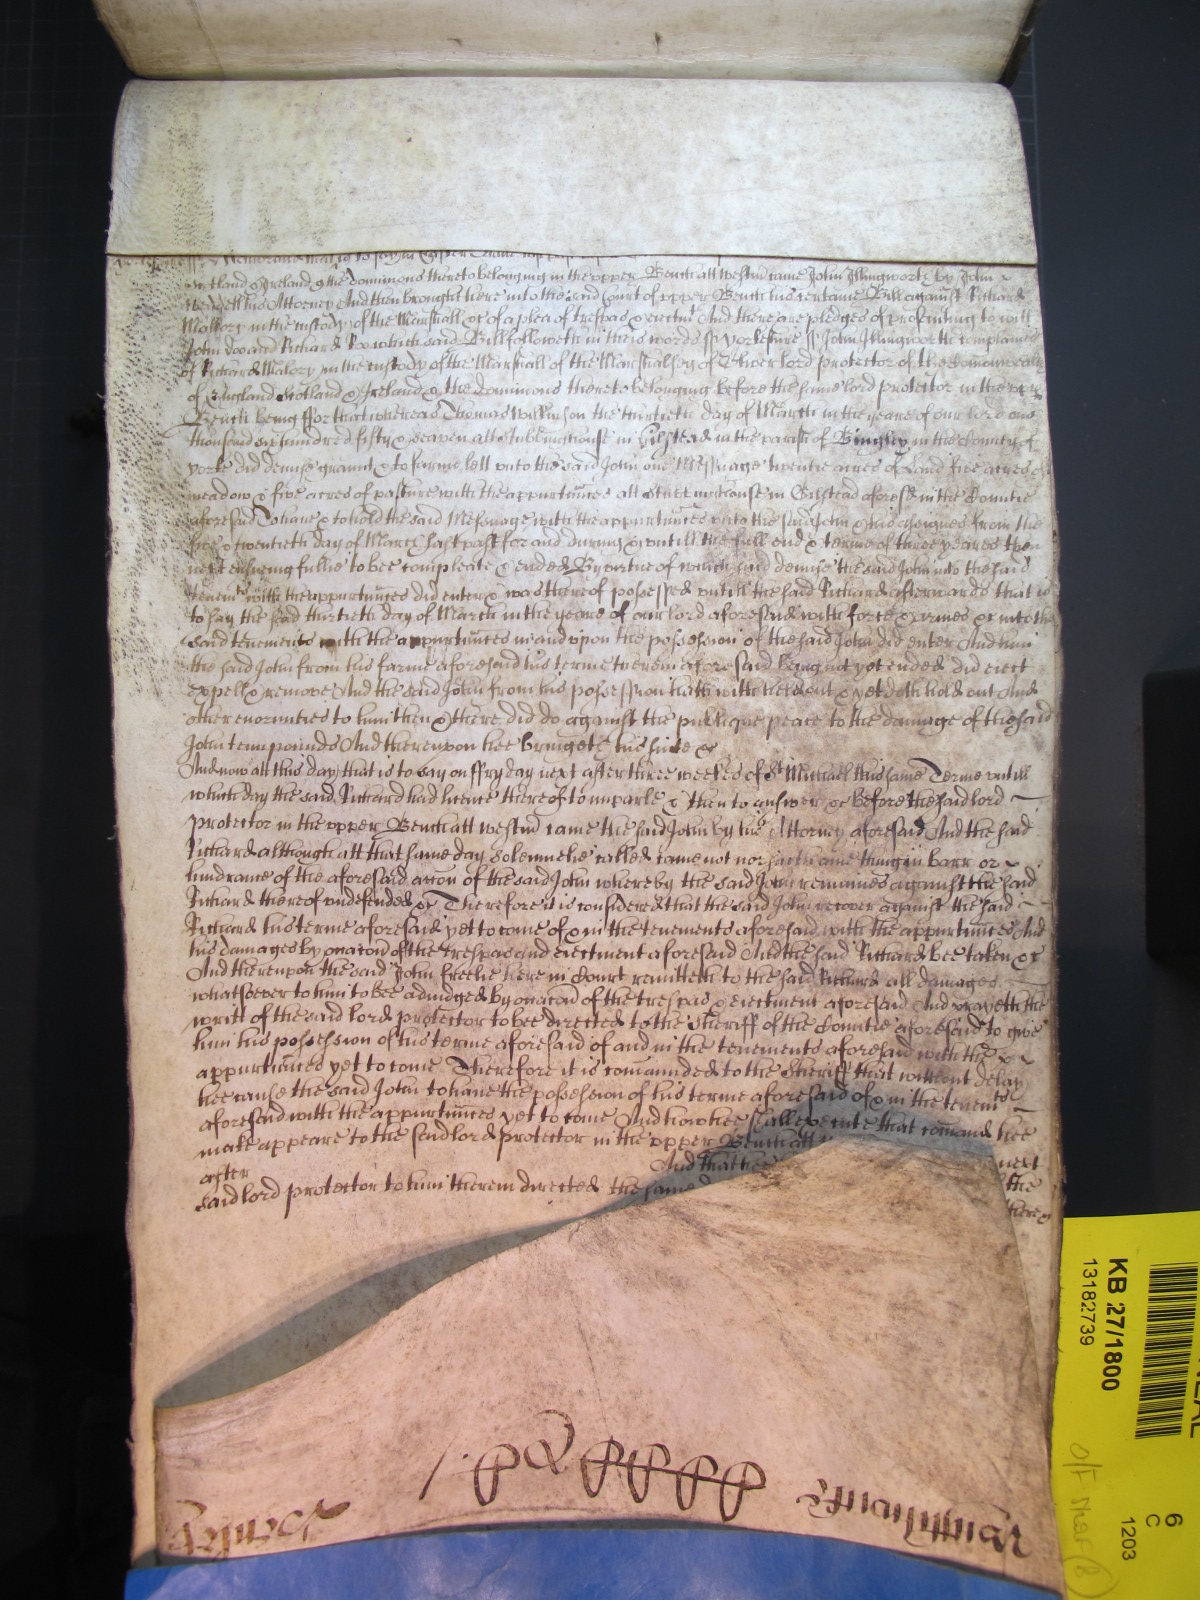 Memorand that
Scotland & Ireland & the dominions thereto belonging in the upper Bench att westm came John Illingworth by John
his Attorney And then brought here into the said Court of upper Bench his certaine Bill against Richard
Mallory in the custody of the Marshall &c of a plea of trespas & eiectmt And there are pledges of prosecuting to witt
John Doo and Richard Roo which said Bill followeth in theis words ss yorkeshire ss John Illingworth complaines
of Richard Malory in the custody of the Marshall of the Marshalsey of Oliver lord protector of the comonwealth
of England Scotland & Ireland & the dominions thereto belonging before the same lord protector in the upper
Bench being ffor that whereas Thomas Wilkinson the thirtieth day of March in the yeare of our lord one
thousand six hundred fifty & seaven att in Gilstead in the parish of Bingley in the County of
yorke did demise graunt & to farme lett unto the said John one Messuage twentie acres of Land five acres of
meadow & five acres of pasture with the appurtnces att in Gilstead aforesd in the Countie
aforesaid To have & to hold the said Messuage with the appurtnces unto the said John & his assignes from the
five & twentieth day of March last past for and during & untill the full end & terme of three yeares then
next ensueing fullie to bee compleate & ended By vertue of which said demise the said John into the said
tenemts with the appurtnces did enter & was thereof possessed untill the said Richard afterwards that is
to say the said thirtieth day of March in the yeare of our lord aforesaid with force & armes &c into the
said tenements with the appurtnces in and upon the possession of the said John did enter And him
the said John from his farme aforesaid his terme therein aforesaid being not yet ended did eiect
expell & remove And the said John from his possession hath withheld out & yet doth hold out And
other enormities to him then & there did do against the publique peace to the damage of the said
John tenn pounds And thereupon hee bringeth his suite &c
And now att this day that is to say on ffryday next after three weekes of St Michael this same Terme untill
which day the said Richard had licence thereof to imparle & then to answer &c before the said lord
Protector in the upper Bench att westm came the said John by his Attorney aforesaid And the said
Richard although att that same day solemnelie called came not nor saith anie thing in barr or
hindrance of the aforesaid accon of the said John whereby the said John remaines against the said
Richard thereof undefended &c Therefore it is considered that the said John recover against the said
Richard his terme aforesaid yet to come of & in the tenements aforesaid with the appurtnces And
his damages by occacon of the trespas and eiectment aforesaid And the said Richard bee taken &c
And thereupon the said John freelie here in Court remitteth to the said Richard all damages
whatsoever to him to bee adiudged by occacon of the trespas & eiectment aforesaid And prayeth the
writt of the said lord protector to bee directed to the Sheriff of the Countie aforesaid to give
him his possession of his terme aforesaid of and in the tenements aforesaid with the
appurtnces yet to come Therefore it is comanded to the Sheriff that without delay
hee cause the said John to have the possession of his terme aforesaid of & in the tenemts
aforesaid with the appurtnces yet to come And how hee shall execute that comand hee
make appeare to the said lord protector in the upper Bench att
next
after And that hee the
said lord protector to him therein directed the same there &c
KB 27/1800
13182739
6
C
1203